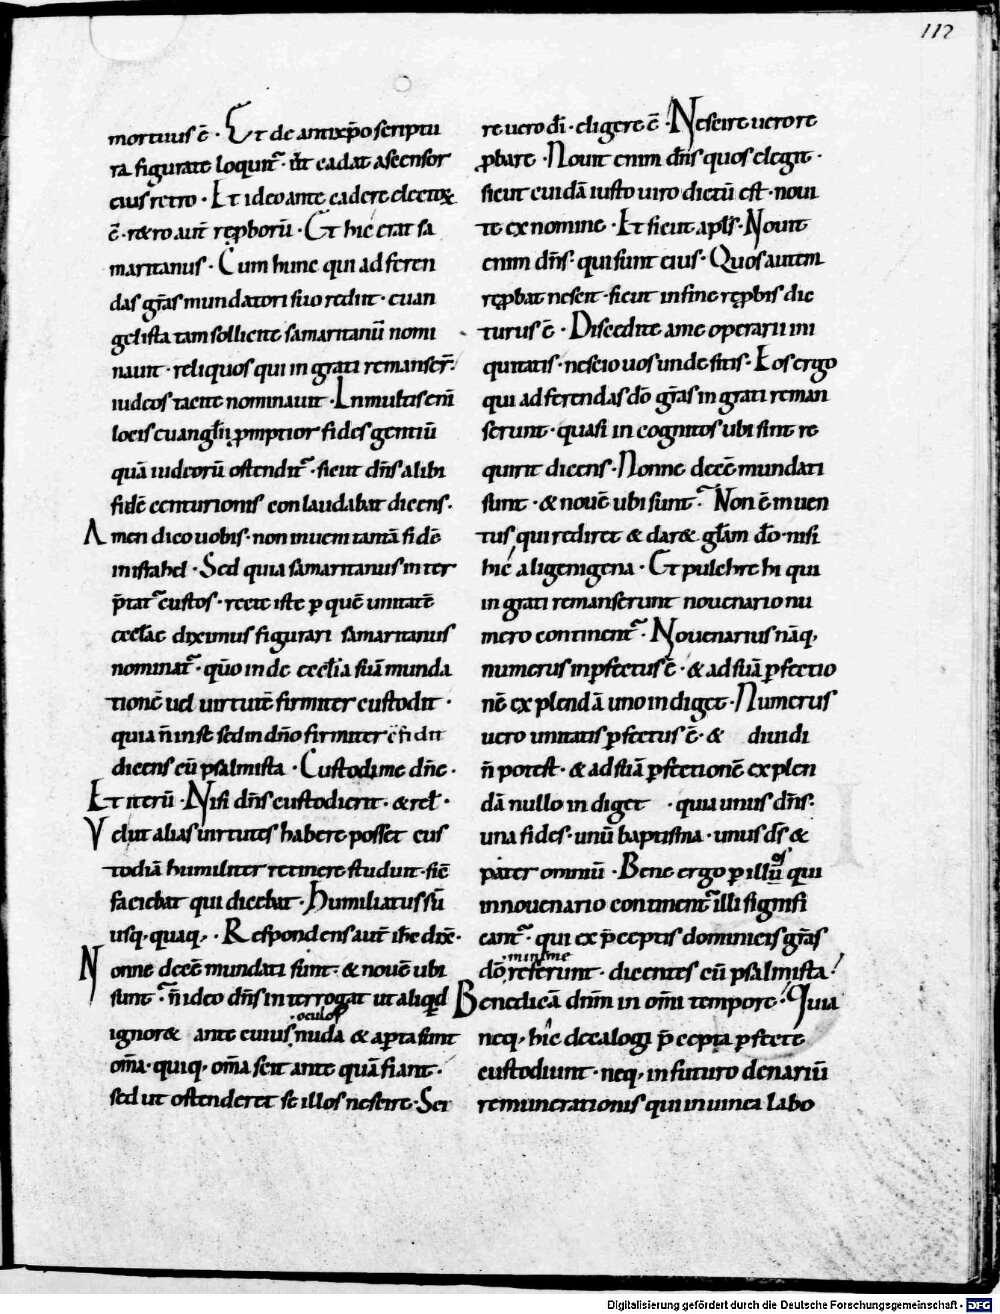 112
mortuus ē· Et de antixp̄o scriptu
ra figurate loquit᷑· ut cadat ascensor
eius retro· Et ideo ante cadere electoꝝ
ē· retro aut̄ reproborū· Et hic erat sa
maritanus· Cum hunc qui ad feren
das gr̄as mundatori suo rediit· euan
gelista tam sollicite samaritanū nomi
nauit· reliquos qui ingrati remanser̄·
iudeos tacite nominauit· In multis eni
locis euangl̄ii promptior fides gentiū
quā iudeorū ostendit᷑· sicut dn̄s alibi
fidē centurionis conlaudabat dicens·
Amen dico uobis· non inueni tantā fidē
in israhel· Sed quia samaritanus inter
p̄tat᷑ custos· recte iste per quē unitatē
eccl̄ae diximus figurari samaritanus
nominat᷑· qūo inde eccl̄ia suā munda
tionē uel uirtutē firmiter custodit·
quia n̄ in se sed in dn̄o firmiter cōfidit
dicens cū psalmista· Custodi me dn̄e·
Et iterū· Nisi dn̄s custodierit· & rel̄·
Velut alias uirtutes habere posset cus
todiā humiliter retinere studuit· sic̄
faciebat qui dicebat· Humiliatus sū
usq· quaq·, Respondens aut̄ ih̄c dix̄·
Nonne decē mundati sunt· & nouē ubi
sunt· n̄ ideo dn̄s interrogat ut aliquid
ignor& ante cuius oculos nuda & aperta sunt
om̄a· quiq· om̄a scit ante quā fiant·
sed ut ostenderet se illos nescire· Sci
re uero dī· eligere ē· Nescire uero re
probare· Nouit enim dn̄s quos elegit·
sicut cuidā iusto uiro dictū est· noui
te ex nomine· Et sicut apl̄s· Nouit
enim dn̄s· qui sunt eius· Quos autem
reprobat nescit· sicut in fine reprobis dic
turus ē· Discedite a me operarii ini
quitatis· nescio uos unde sitis· Eos ergo
qui ad ferendas dō gr̄as ingrati reman
serunt· quasi incognitos ubi sint re
quirit dicens· Nonne decē mundati
sunt· & nouē ubi sunt· Non ē inuen
tus qui rediret & dar& gl̄am dō· nisi
hic aligenigena· Et pulchre hi qui
ingrati remanserunt nouenario nu
mero continent᷑· Nouenarius nāq·
numerus inperfectus ē· & ad suā perfectio
nē explendā uno indiget· Numerus
uero unitatis perfectus ē· & diuidi
n̄ potest· & ad suā perfectionē explen
dā nullo indiget · quia unus dn̄s·
una fides· unū baptisma· unus ds̄ &
pater omniū· Bene ergo per illos qui
in nouenario continent᷑ illi signifi
cant᷑· qui ex p̄ceptis dominicis gr̄as
dō minime referunt· dicentes cū psalmista·
Benedicā dnm̄ in omī tempore· Quia
neq· hic decalogi p̄cepta perfecte
custodiunt· neq· in futuro denariū
remunerationis qui in uinea labo
Digitalisierung gefördert durch die Deutsche Forschungsgemeinschaft - DFG